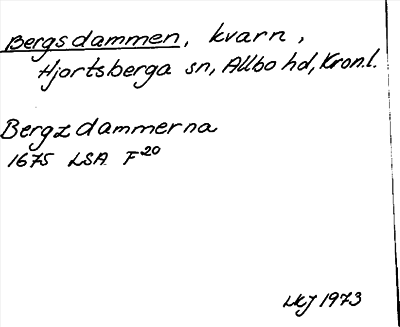 Bergsdammen, kvarn,
Hjortsberga sn, Allbo hd, Kron.l.
Bergz dammerna
1675 LSA F20
LKJ 1973